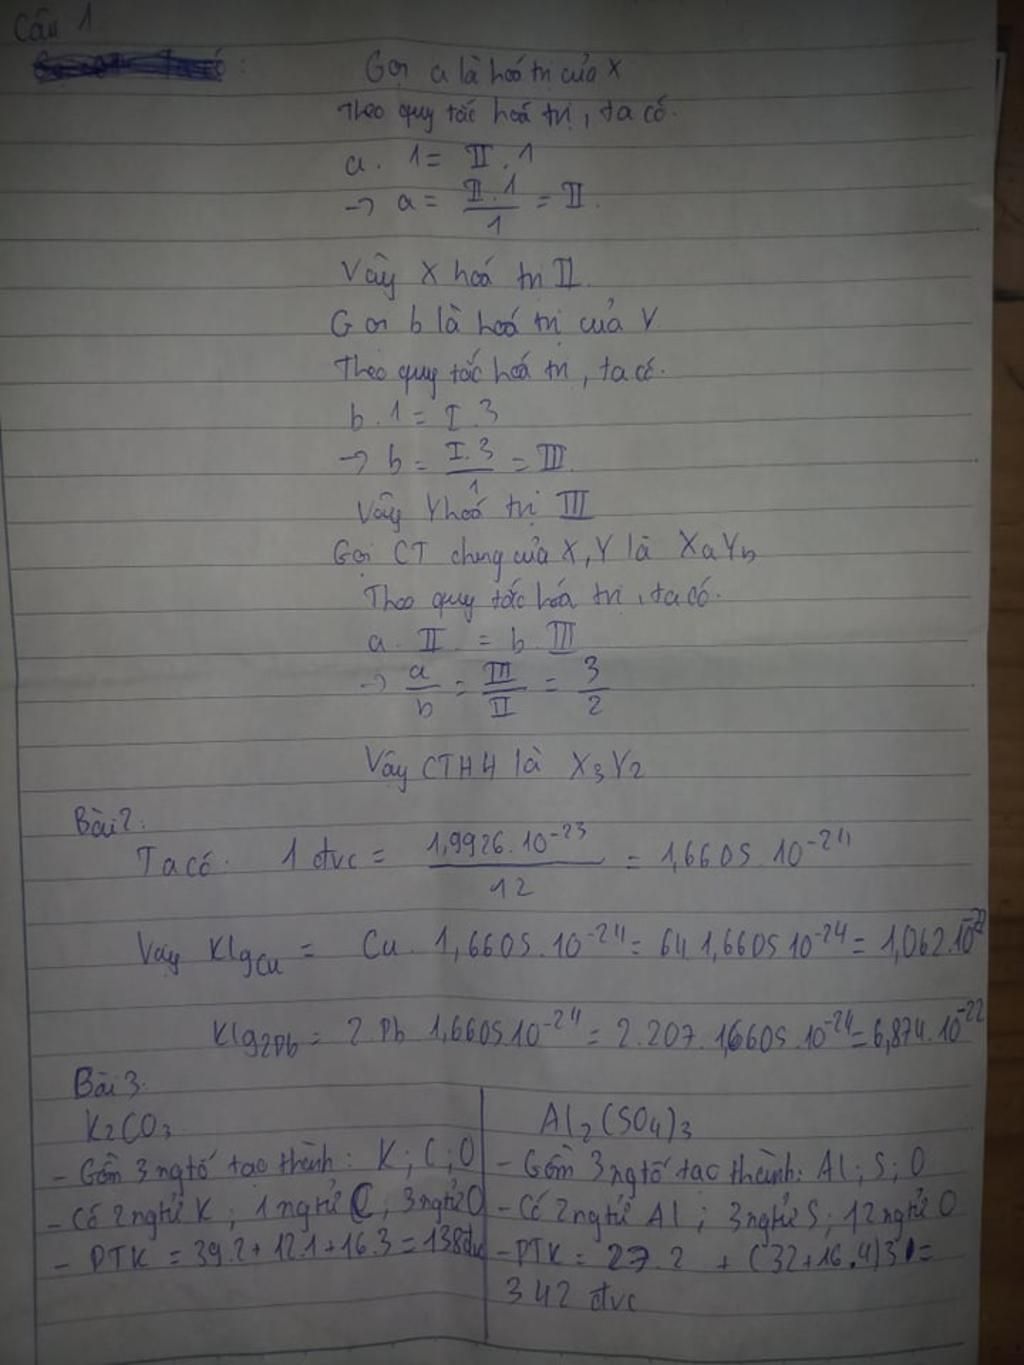 Câu 1
: Gọi a là hoá trị của X
Theo quy tắc hoá trị, ta có.
a. 1 = II.1
→ a = II.1/1 = II.
Vậy X hoá trị II.
Gọi b là hoá trị của Y
Theo quy tắc hoá trị, ta có.
b.1 = I.3
→ b = I.3/1 = III.
Vậy Y hoá trị III
Gọi CT chung của X, Y là XaYb
Theo quy tắc hóa trị, ta có.
a. II = b. III
→ a/b = III/II = 3/2
Vậy CTHH là X3Y2
Bài 2:
Ta có: 1 đvc = 1,9926.10⁻²³/12 = 1,6605.10⁻²⁴
Vậy KlgCu = Cu. 1,6605.10⁻²⁴ = 64 1,6605 10⁻²⁴ = 1,062.10⁻²²
Klg2Pb = 2.Pb 1,6605 10⁻²⁴ = 2.207.1,6605.10⁻²⁴ = 6,874.10⁻²²
Bài 3:
K2CO3
- Gồm 3 ngtố tạo thành: K; C; O
- Có 2 ngtử K; 1 ngtử C; 3 ngtử O
- PTK = 39.2 + 12.1 + 16.3 = 138đvc
Al2(SO4)3
- Gồm 3 ngtố tạo thành: Al; S; O
- Có 2 ngtử Al; 3 ngtử S; 12 ngtử O
- PTK = 27.2 + (32+16.4)3 =
342 đvc